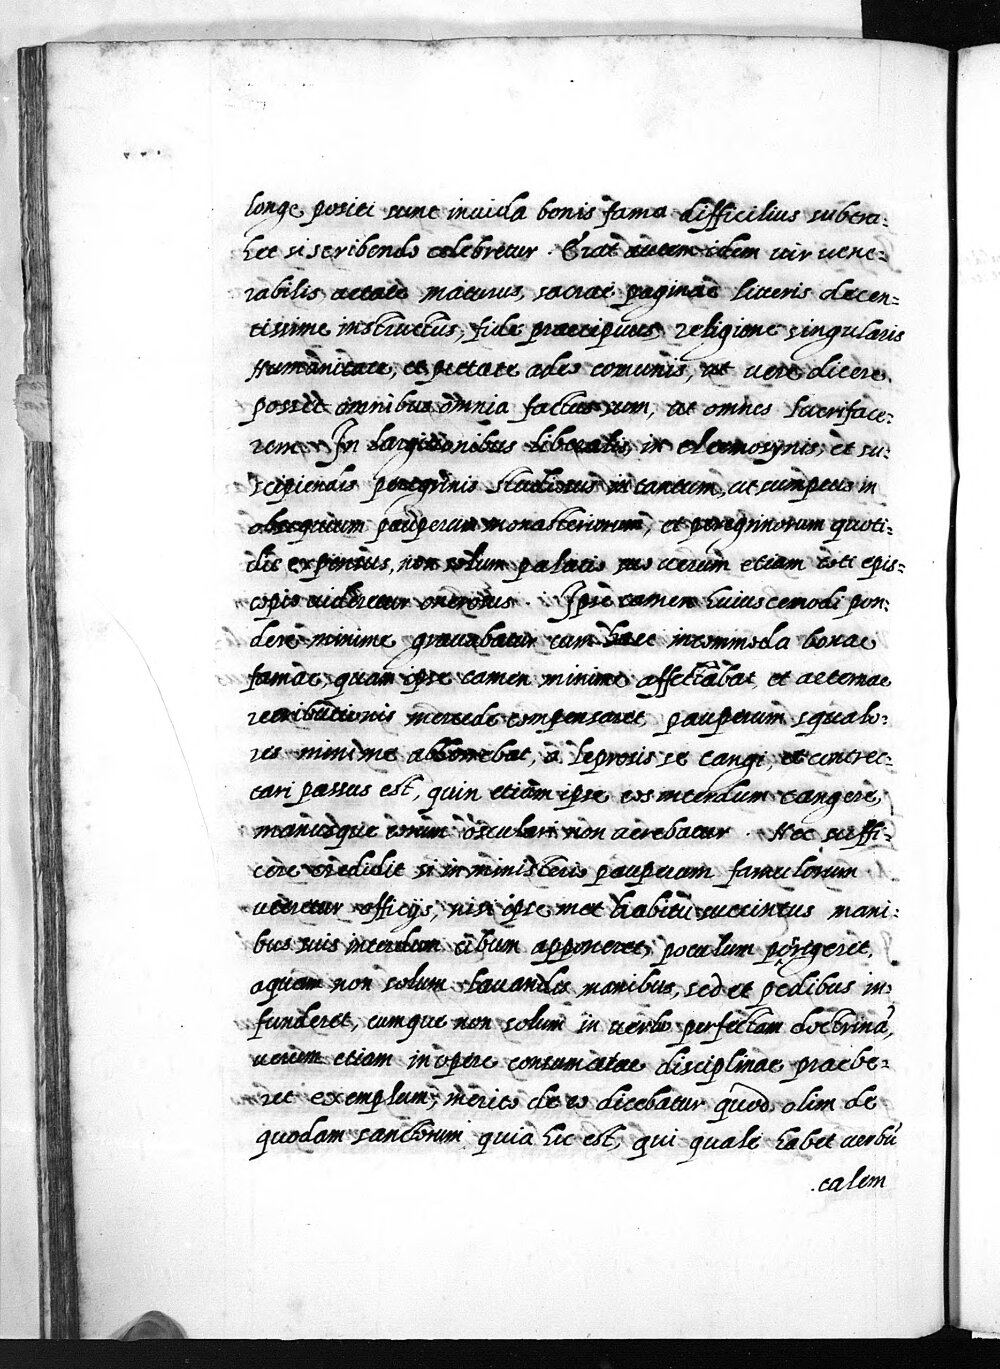 longe positi sunt inuida bonis fama difficilius subtra=
het si scribendo celebretur. Erat autem idem uir uene=
rabilis aetate maturus, sacrae paginae litteris decen=
tissime instructus, fide praecipuus religione singularis
Humanitate, et pietate adeo comunis, ut uere dicere
posset omnibus omnia factus sum, ut omnes lucriface=
rem. In largitionibus liberalis, in eleemosynis, et su=
scipiendis peregrinis studiosus in tantum, ut sumptus in
obsequium pauperum monasteriorum, et peregrinorum quoti=
die expensus, non solum palatio suo uerum etiam toti epis=
copio uideretur onerosus. Ipse tamen huiuscemodi pon=
dere minime grauabatur cum haec incommoda bonae
famae, quam ipse tamen minime affectabat, et aeternae
retributionis mercede compensaret, pauperum squalo=
res minime abhorrebat, a leprosis se tangi, et contrec=
tari passus est, quin etiam ipse eos interdum tangere,
manusque eorum osculari non uerebatur. Nec suffi=
cere credidit si in ministerio pauperum famulorum
uteretur officijs, nisi ipsemet habitu succintus mani=
bus suis interdum cibum apponeret, poculum porrigeret,
aquam non solum lauandis manibus, sed et pedibus in=
funderet, cumque non solum in uerbo perfectam doctrinã,
uerum etiam in opere consumatae disciplinae praebe=
ret exemplum, merito de eo dicebatur quod olim de
quodam sanctorum quia hic est, qui quale habet uerbũ
talem